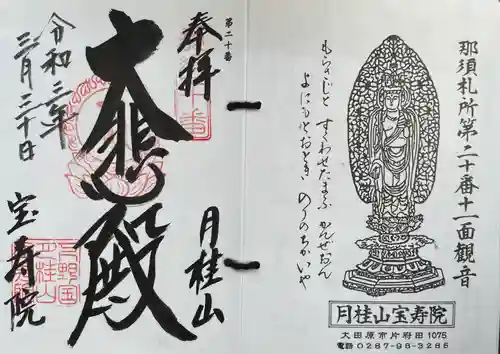 那須札所第二十番十一面観音
もらさじと すくわせたまふ かんぜおん
よにもせおとき のりのちかいや
月桂山宝寿院
大田原市片府田1075
電話0287-98-3285
第二十番
奉拝
月桂山
大悲殿
令和三年
三月三十日
宝寿院